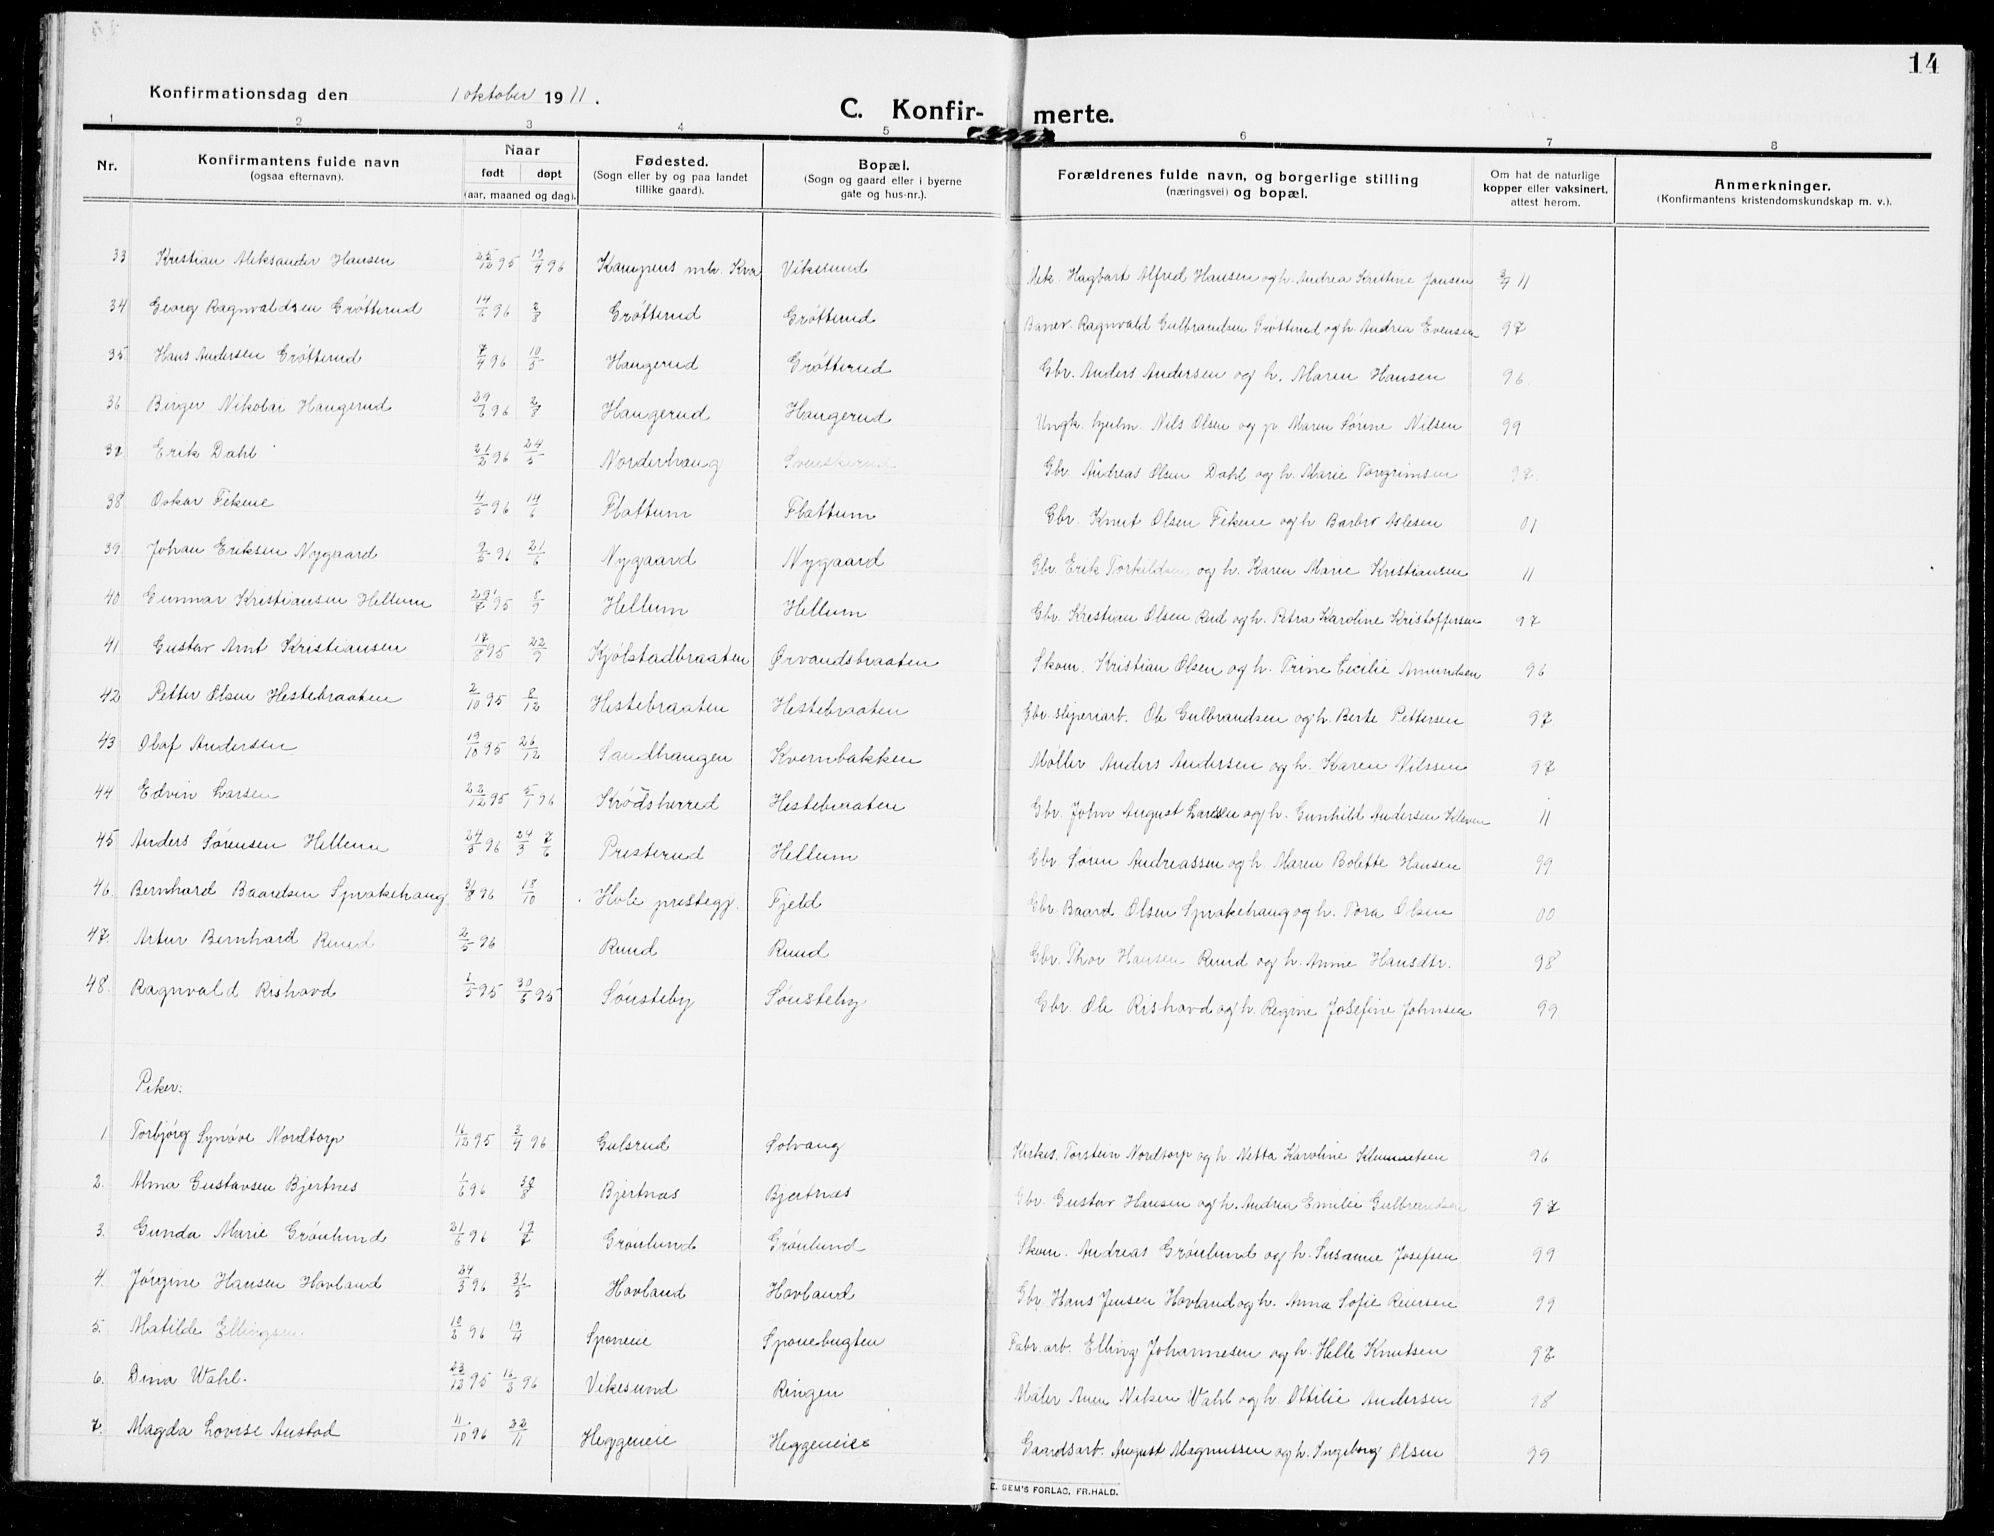 14
Konfirmationsdag den 1 oktober 1911.
C. Konfir- merte.
1 2 3 4 5 6 7 8
Nr. Konfirmantens fulde navn (ogsaa efternavn). Naar født døpt (aar, maaned og dag). Fødested. (Sogn eller by og paa landet tillike gaard). Bopæl. (Sogn og gaard eller i byerne gate og hus-nr.). Forældrenes fulde navn, og borgerlige stilling (næringsvei) og bopæl. Om hat de naturlige kopper eller vaksinert, attest herom. Anmerkninger. (Konfirmantens kristendomskundskap m. v.).
33 Kristian Aleksander Hansen 25/12 95 19/4 96 Kampens mh. Kra Vikesund Hagbart Alfred Hansen og h. Andrea Kristine Jansen 11
34 Georg Ragnvaldsen Grøtterud 14/6 96 2/8 Grøtterud Grøtterud Baner. Ragnvald Gulbrandsen Grøtterud og h. Andrea Evensen 97
35 Hans Andersen Grøtterud 7/4 96 10/5 Haugerud Grøtterud Gbr. Anders Andersen og h. Maren Hansen 96
36 Birger Nikolai Haugerud 29/6 96 2/8 Haugerud Haugerud Ungk. hjulm. Nils Olsen og p. Maren Sørine Nilsen 99
37 Erik Dahl 21/2 96 24/5 Norderhaug Svenskerud Gbr. Andreas Olsen Dahl og h. Marie Torgrimsen 97
38 Oskar Fekene 4/5 96 14/6 Flattum Flattum Gbr. Knut Olsen Fekene og h Barbro Aslesen 01
39 Johan Eriksen Nygaard 9/5 96 21/6 Nygaard Nygaard Gbr. Erik Torkildsen og h. Karen Marie Kristiansen 11
40 Gunnar Kristiansen Hellum 29/7 95 8/9 Hellum Hellum Gbr. Kristian Olsen Rud og h. Petra Karoline Kristoffersen 97
41 Gustav Arnt Kristiansen 17/8 95 22/9 Kjølstadbraaten Ørvandsbraaten Skom. Kristian Olsen og h. Trine Cecilie Amundsen 96
42 Petter Olsen Hestebraaten 2/10 95 8/12 Hestebraaten Hestebraaten Gbr. sliperiarb. Ole Gulbrandsen og h. Berte Pettersen 97
43 Olaf Andersen 19/10 95 26/12 Sandhaugen Kvernbakken Møller Anders Andersen og h. Karen Nilssen 97
44 Edvin Larsen 22/12 95 5/1 96 Krødsherred Hestebraaten Gbr. John August Larsen og h. Gunhild Andersen Kleven 11
45 Anders Sørensen Hellum 24/3 96 24/3 7/6 Presterud Hellum Gbr Søren Andreassen og h. Maren Bolette Hansen 99
46. Bernhard Baardsen Spraakehaug 31/8 96 18/10 Hole prestegj. Fjeld Gbr. Baard Olsen Spraakehaug og h. Tora Olsen 00
47. Artur Bernhard Ruud 2/5 96 Ruud Ruud Gbr. Thor Hansen Ruud og h. Anne Hansdtr. 98
48. Ragnvald Rishovd 1/5 95 30/6 95 Sønsteby Sønsteby Gbr. Ole Rishovd og h. Regine Josefine Johnsen 99
Piker:
1 Torbjørg Synøve Nordtorp 16/12 95 3/4 96 Gulsrud Solvang Kirkes. Torstein Nordtorp og h Netta Karoline Klemmetsen 96
2. Alma Gustavsen Bjertnes 1/6 96 30/8 Bjertnæs Bjertnæs Gbr. Gustav Hansen og h. Andrea Emilie Gulbrandsen 97
3. Gunda Marie Grønlund 21/6 96 19/7 Grønlund Grønlund Skom. Andreas Grønlund og h. Susanne Josefsen 99
4. Jørgine Hansen Hovland 24/3 96 31/5 Hovland Hovland Gbr. Hans Jensen Hovland og h. Anna Sofie Reiersen 99
5. Matilde Ellingsen 10/2 96 19/4 Sponeie Sponebugten Fabr.arb. Elling Johannesen og h. Helle Knutsen 97
6. Dina Wahl. 23/12 95 16/3 96 Vikesund Ringen Maler Anen Nilsen Wahl og h Ottelie Andersen 98
7. Magda Lovise Austad 11/10 96 22/11 Heggeneie Heggeneie Gaardsarb. August Magnussen og h. Ingeborg Olsen 99
E. SEM'S FORLAG, FR.HALD.